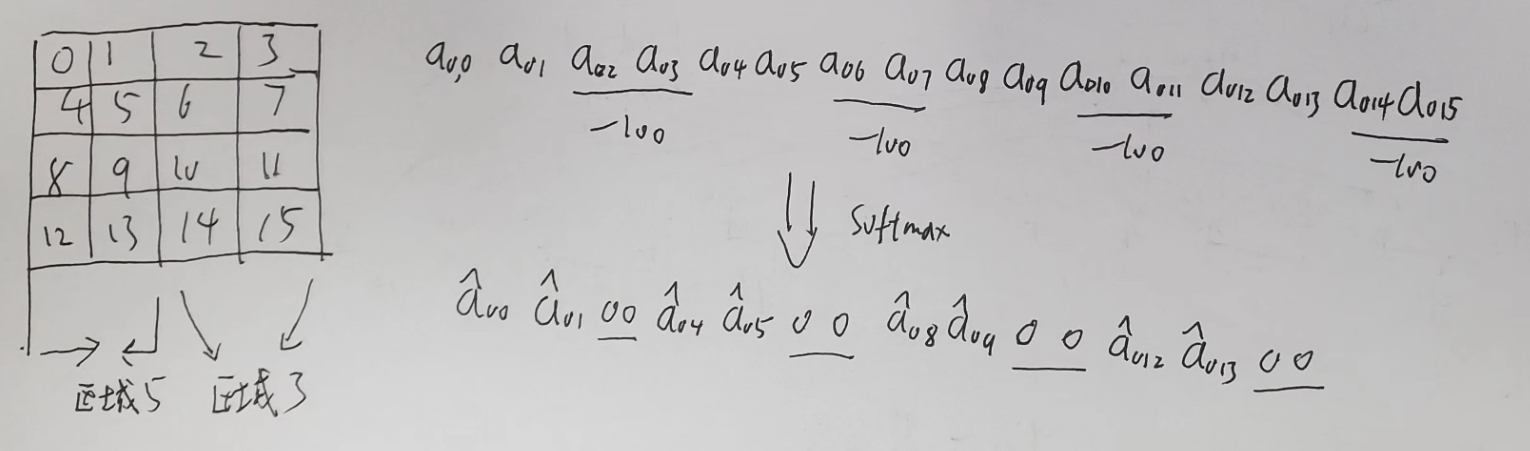 0 1 2 3
4 5 6 7
8 9 10 11
12 13 14 15
区域5 区域3
a0,0 a01 a02 a03 a04 a05 a06 a07 a08 a09 a010 a011 a012 a013 a014 a015
-100 -100 -100 -100
softmax
â00 â01 00 â04 â05 0 0 â08 â09 0 0 â012 â013 0 0